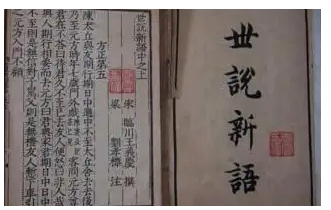 世說新語
世說新語中之上
宋 臨川王義慶 撰
梁 劉孝標 注
方正第五
陳太丘與友期行期日中過中不至太丘舍去去後
乃至元方時年七歲門外戲客問元方尊
君在不荅曰待君久不至已去友人便怒曰非人哉
與人期行相委而去元方曰君與家君期日中日中
不至則是無信對子罵父則是無禮友人慙下車引
之元方入門不顧